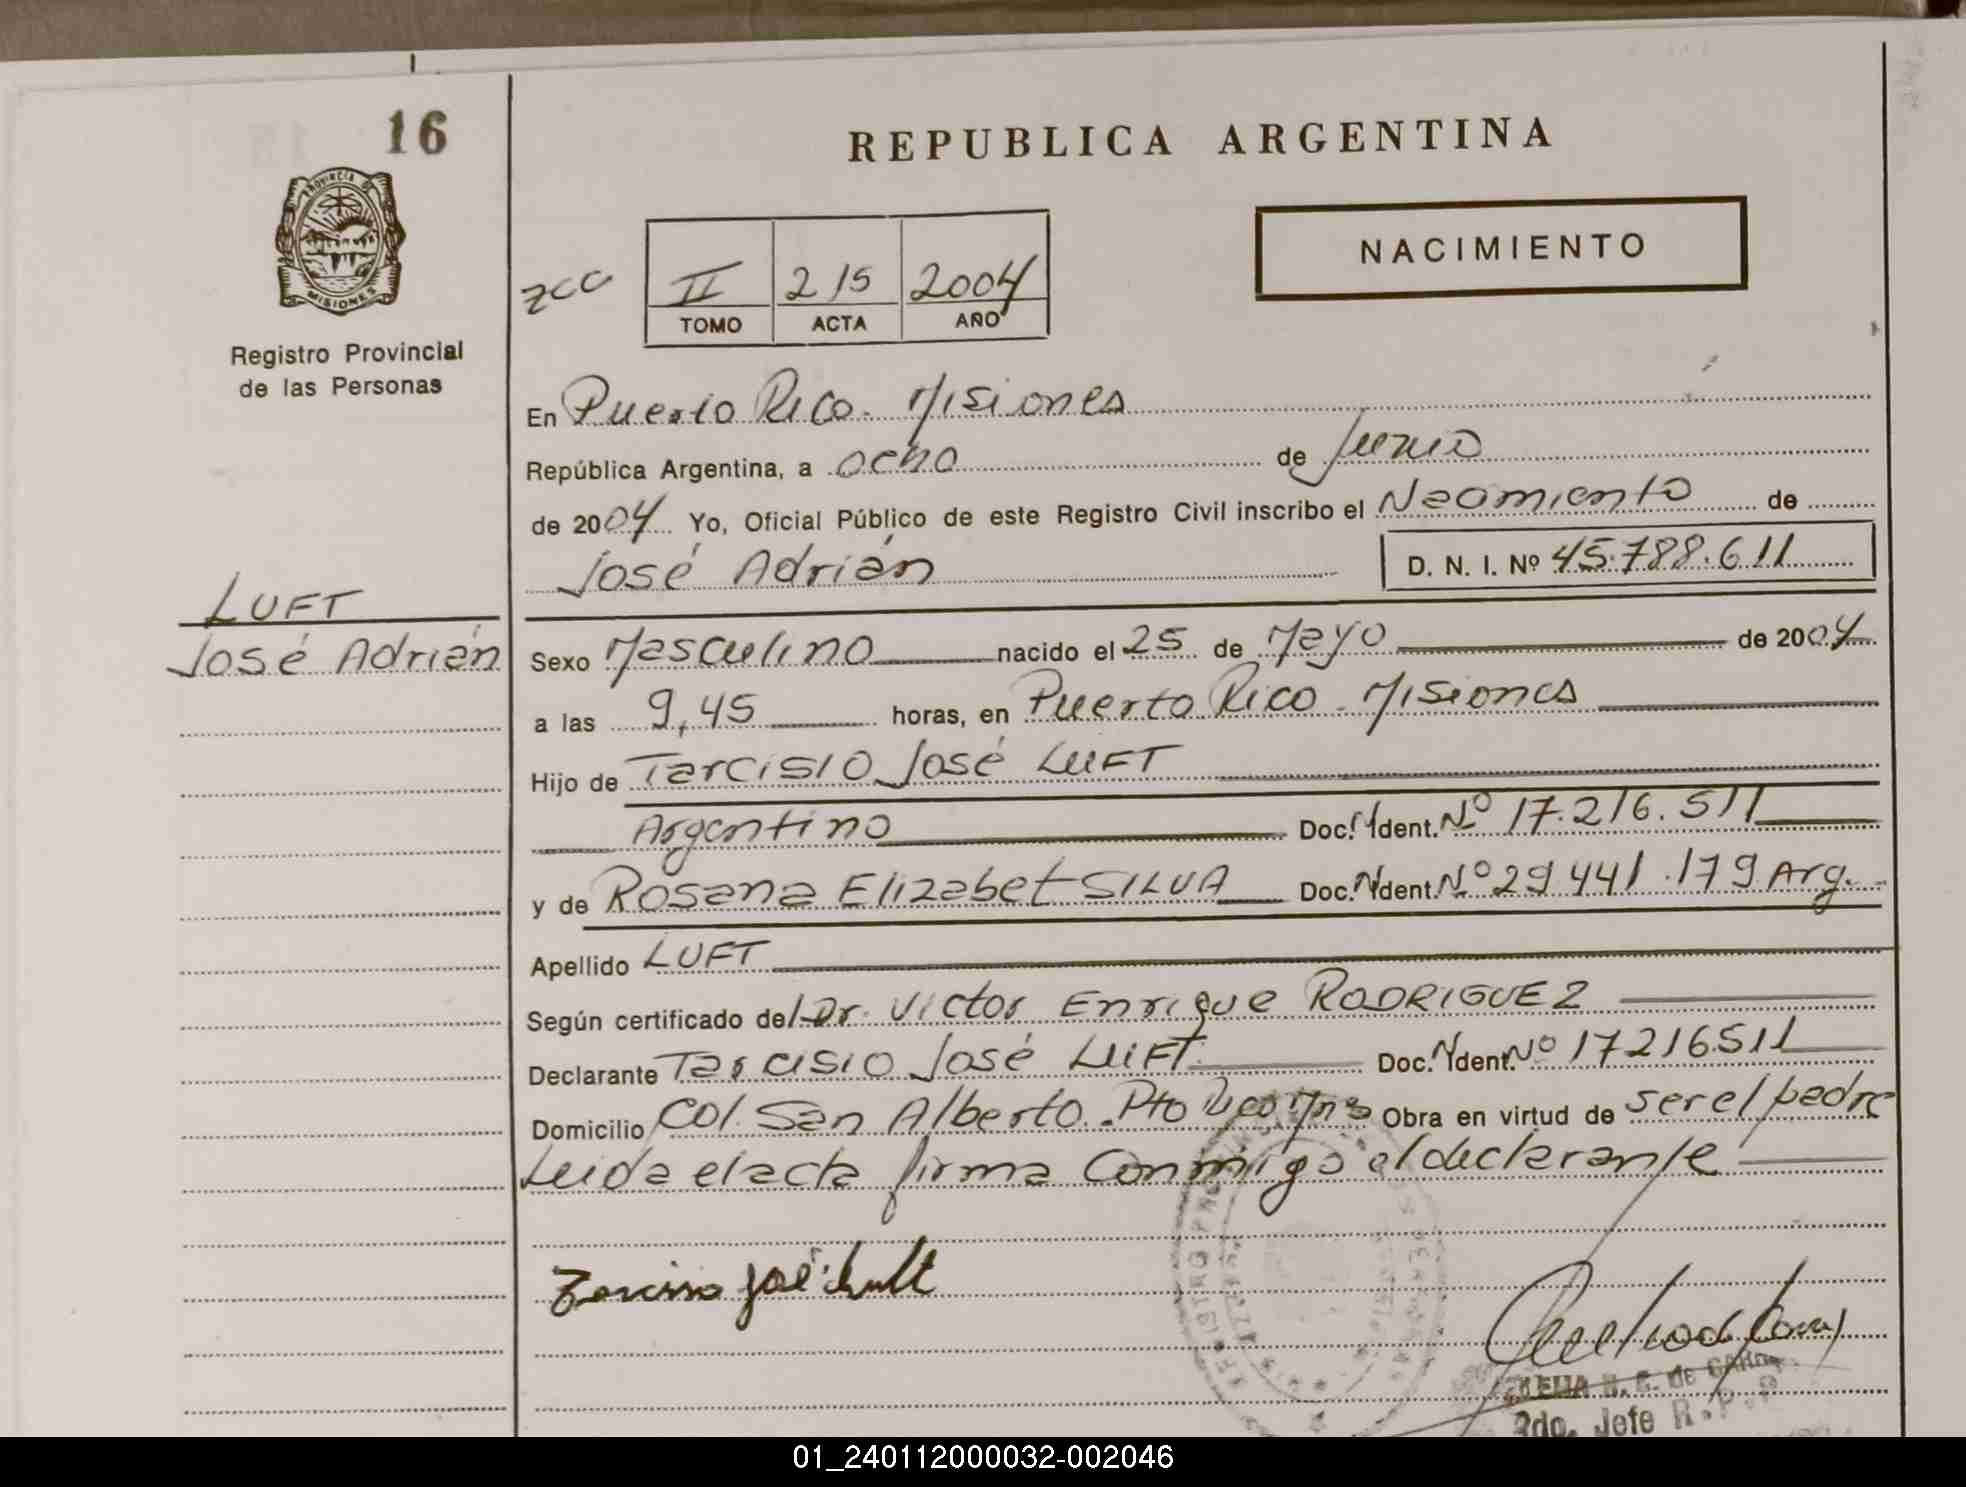 16
REPUBLICA ARGENTINA
PROVINCIA DE
MISIONES
Registro Provincial
de las Personas
NACIMIENTO
II 215 2004
TOMO ACTA AÑO
En Puerto Rico. Misiones
República Argentina, a ocho de Junio
de 2004 Yo, Oficial Público de este Registro Civil inscribo el Nacimiento de
José Adrián D. N. I. Nº 45.788.611
LUFT
José Adrián
Sexo Masculino nacido el 25 de Mayo de 2004
a las 9,45 horas, en Puerto Rico. Misiones
Hijo de Tarcisio José LUFT
Argentino Doc. Ident. Nº 17.216.511
y de Rosana Elizabet SILVA Doc. Ident. Nº 29 441.179 Arg.
Apellido LUFT
Según certificado del Dr. Victor Enrique RODRIGUEZ
Declarante Tarcisio José LUFT. Doc. Ident. Nº 17216511
Domicilio Col. San Alberto. Pto Rico Mns Obra en virtud de ser el padre
Leida el acta firma conmigo el declarante
2do. Jefe R.P.P.
01_240112000032-002046